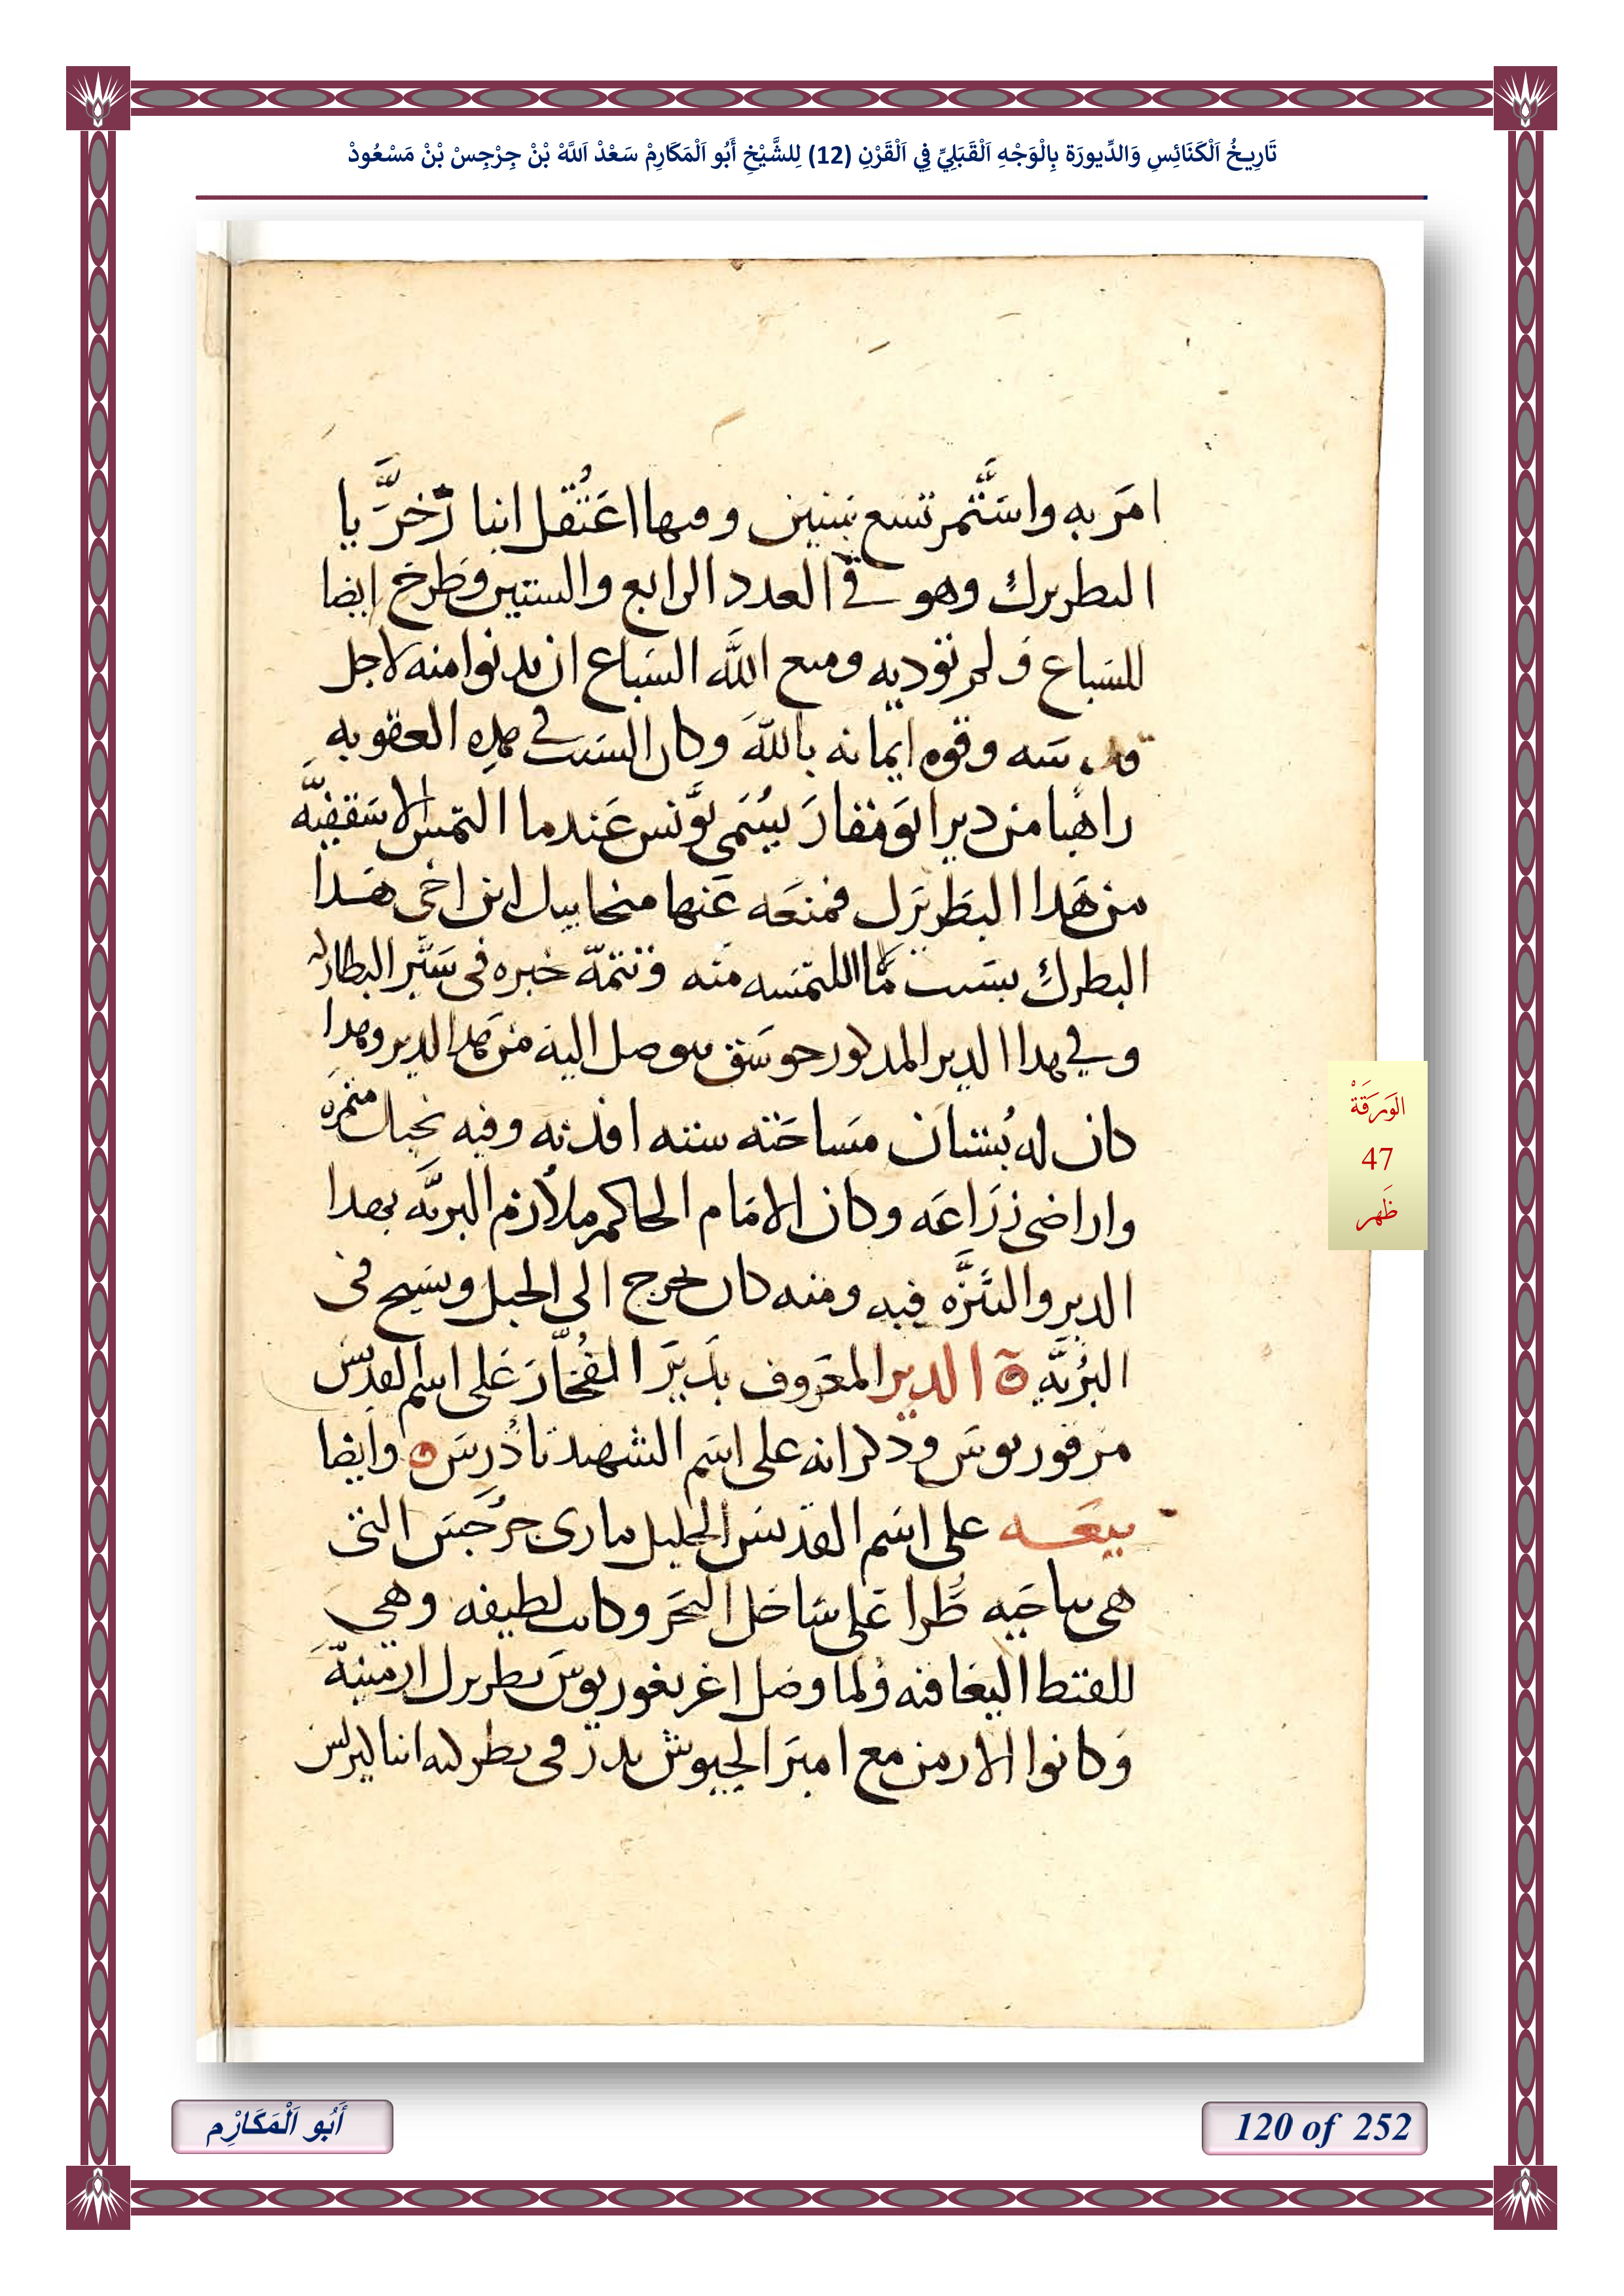 تَارِيخُ اَلْكَنَائِسِ وَالدِّيورَة بِالْوَجْهِ اَلْقَبَلِيِّ فِي اَلْقَرْنِ (12) لِلشَّيْخِ أَبُو اَلْمَكَارِمْ سَعْدْ اَللَّهْ بْنْ جِرْجِسْ بْنْ مَسْعُودْ
امر به واستمر تسع سنين وفيها اعتقل انبا زخريا
البطريرك وهو في العدد الرابع والستين وطرح ايضا
للسباع ولم توديه ومنع الله السباع ان يدنوا منه لاجل
قدسه وقوه ايمانه بالله وكان السبب في هده العقوبه
راهبا من دير ابو مقار يسمى يونس عندما التمس الاسقفية
من هدا البطريرك فمنعه عنها منخاييل ابن اخى هدا
البطرك بسبب ما اللتمسه منه وتتمة خبره فى سير البطاركه
وفي هدا الدير المدكور جوسق يتوصل اليه من هدا الدير وهدا
كان له بستان مساحته سته افدنه وفيه نخيل مثمره
واراضى زراعه وكان الامام الحاكم ملازم البريه بهدا
الدير والتنزه فيه ومنه كان يخرج الى الجبل ويسيح فى
البرية ة الدير المعروف بدير الفخار على اسم القديس
مرقوريوس ودكرانه على اسم الشهيد تادرس ه وايضا
بيعه على اسم القديس الجليل مارى جرجس التى
هى بناحيه طرا على ساحل البحر وكانت لطيفه وهي
للقبط اليعاقبه ولما وصل اغريغوريوس بطريرك ارمنية
وكانوا الارمن مع امير الجيوش بدر فى بطركيه انبا كيرلس
الوَرَقَةْ
47
ظَهر
أَبُو اَلْمَكَارِْم
120 of 252